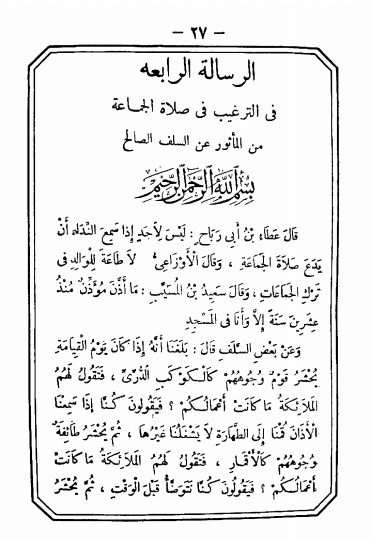 — ٢٧ —
الرسالة الرابعه
فى الترغيب فى صلاة الجماعة
من المأثور عن السلف الصالح
بِسْمِ اللَّهِ الرَّحْمَنِ الرَّحِيمِ
قَالَ عَطَاءِ بْنُ أَبِى رَبَاحٍ : لَيْسَ لِأَحَدٍ إِذَا سَمِعَ النِّدَاءَ أَنْ
يَدَعَ صَلَاةَ الجَمَاعَةِ ، وَقَالَ الْأَوْزَاعِىُّ لَا طَاعَةَ لِلْوَالِدِ فِى
تَرْكِ الجَمَاعَاتِ ، وَقَالَ سَعِيدُ بْنُ المُسَيِّبِ : مَا أَذَّنَ مُؤَذِّنٌ مُنْذُ
عِشْرِينَ سَنَةً إِلَّا وَأَنَا فِى المَسْجِدِ
وَعَنْ بَعْضِ السَّلَفِ قَالَ : بَلَغَنَا أَنَّهُ إِذَا كَانَ يَوْمُ الْقِيَامَةِ
يُحْشَرُ قَوْمٌ وُجُوهُهُمْ كَالْكَوْكَبِ الدُّرِّىِّ ، فَتَقُولُ لَهُمُ
المَلَائِكَةُ مَا كَانَتْ أَعْمَالُكُمْ ؟ فَيَقُولُونَ كُنَّا إِذَا سَمِعْنَا
الْأَذَانَ قُمْنَا إِلَى الطَّهَارَةِ لَا يَشْغَلُنَا غَيْرُهَا ، ثُمَّ يُحْشَرُ طَائِفَةٌ
وُجُوهُهُمْ كَالْأَقْمَارِ ، فَتَقُولُ لَهُمُ المَلَائِكَةُ مَا كَانَتْ
أَعْمَالُكُمْ ؟ فَيَقُولُونَ كُنَّا نَتَوَضَّأُ قَبْلَ الْوَقْتِ ، ثُمَّ يُحْشَرُ